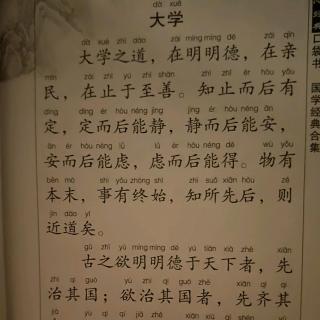 dà xué
大学
dà xué zhī dào zài míng míng dé zài qīn
大学之道，在明明德，在亲
mín zài zhǐ yú zhì shàn zhī zhǐ ér hòu yǒu
民，在止于至善。知止而后有
dìng dìng ér hòu néng jìng jìng ér hòu néng ān
定，定而后能静，静而后能安，
ān ér hòu néng lǜ lǜ ér hòu néng dé wù yǒu
安而后能虑，虑而后能得。物有
běn mò shì yǒu zhōng shǐ zhī suǒ xiān hòu zé
本末，事有终始，知所先后，则
jìn dào yǐ
近道矣。
gǔ zhī yù míng míng dé yú tiān xià zhě xiān
古之欲明明德于天下者，先
zhì qí guó yù zhì qí guó zhě xiān qí qí
治其国；欲治其国者，先齐其
口袋书
国学经典合集